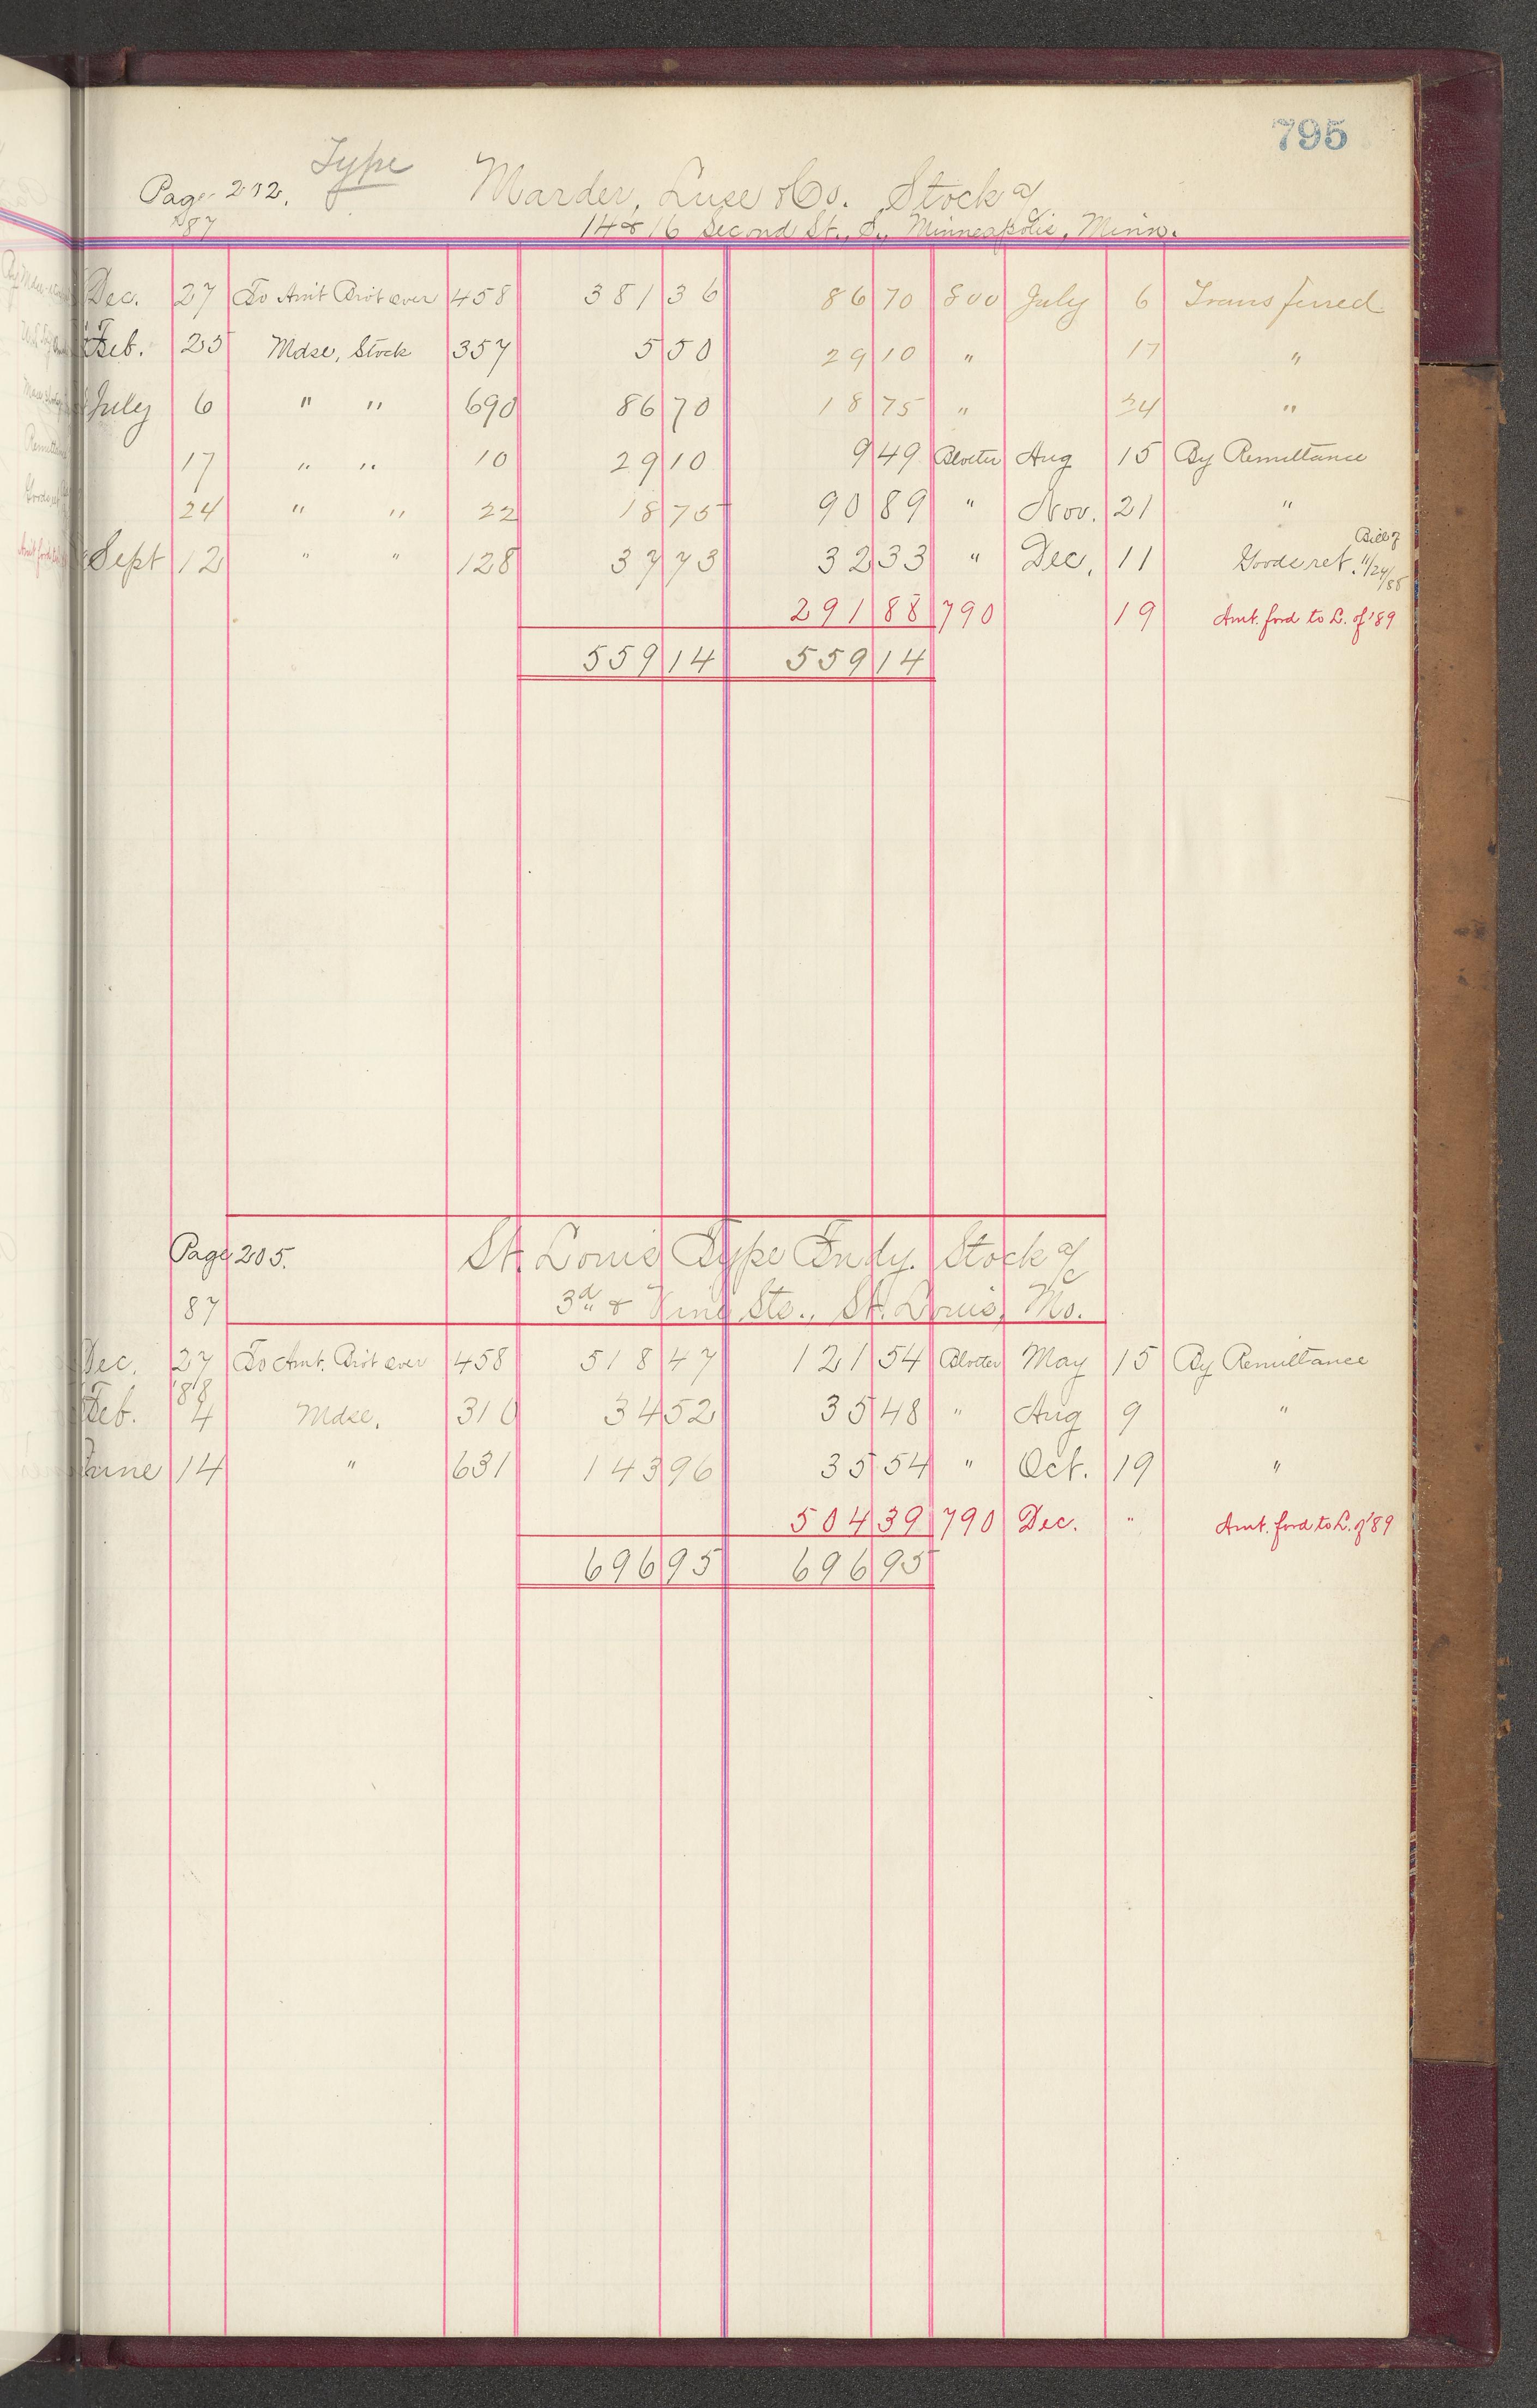 795
Type
Page 212. Marder, Luse & Co. Stock a/c
'87 14 & 16 Second St., S., Minneapolis, Minn.
Dec. 27 To Am't Bro't over 458 381 36 86 70 800 July 6 Transferred
Feb. 25 Mdse, Stock 357 5 50 29 10 " 17 "
July 6 " " 690 86 70 18 75 " 24 "
17 " " 10 29 10 9 49 Blotter Aug 15 By Remittance
24 " " 22 18 75 90 89 " Nov. 21 "
Sept 12 " " 128 37 73 32 33 " Dec. 11 Goods ret. Bill of 11/24/88
291 88 790 19 Amt. ford to L. of '89
559 14 559 14
Page 205. St. Louis Type Fndy. Stock a/c
87 3d & Vine Sts., St. Louis, Mo.
Dec. 27 To Amt. Bro't over 458 518 47 121 54 Blotter May 15 By Remittance
'88
Feb. 4 Mdse. 310 34 52 35 48 " Aug 9 "
June 14 " 631 143 96 35 54 " Oct. 19 "
504 39 790 Dec. " Amt. ford to L. of '89
696 95 696 95